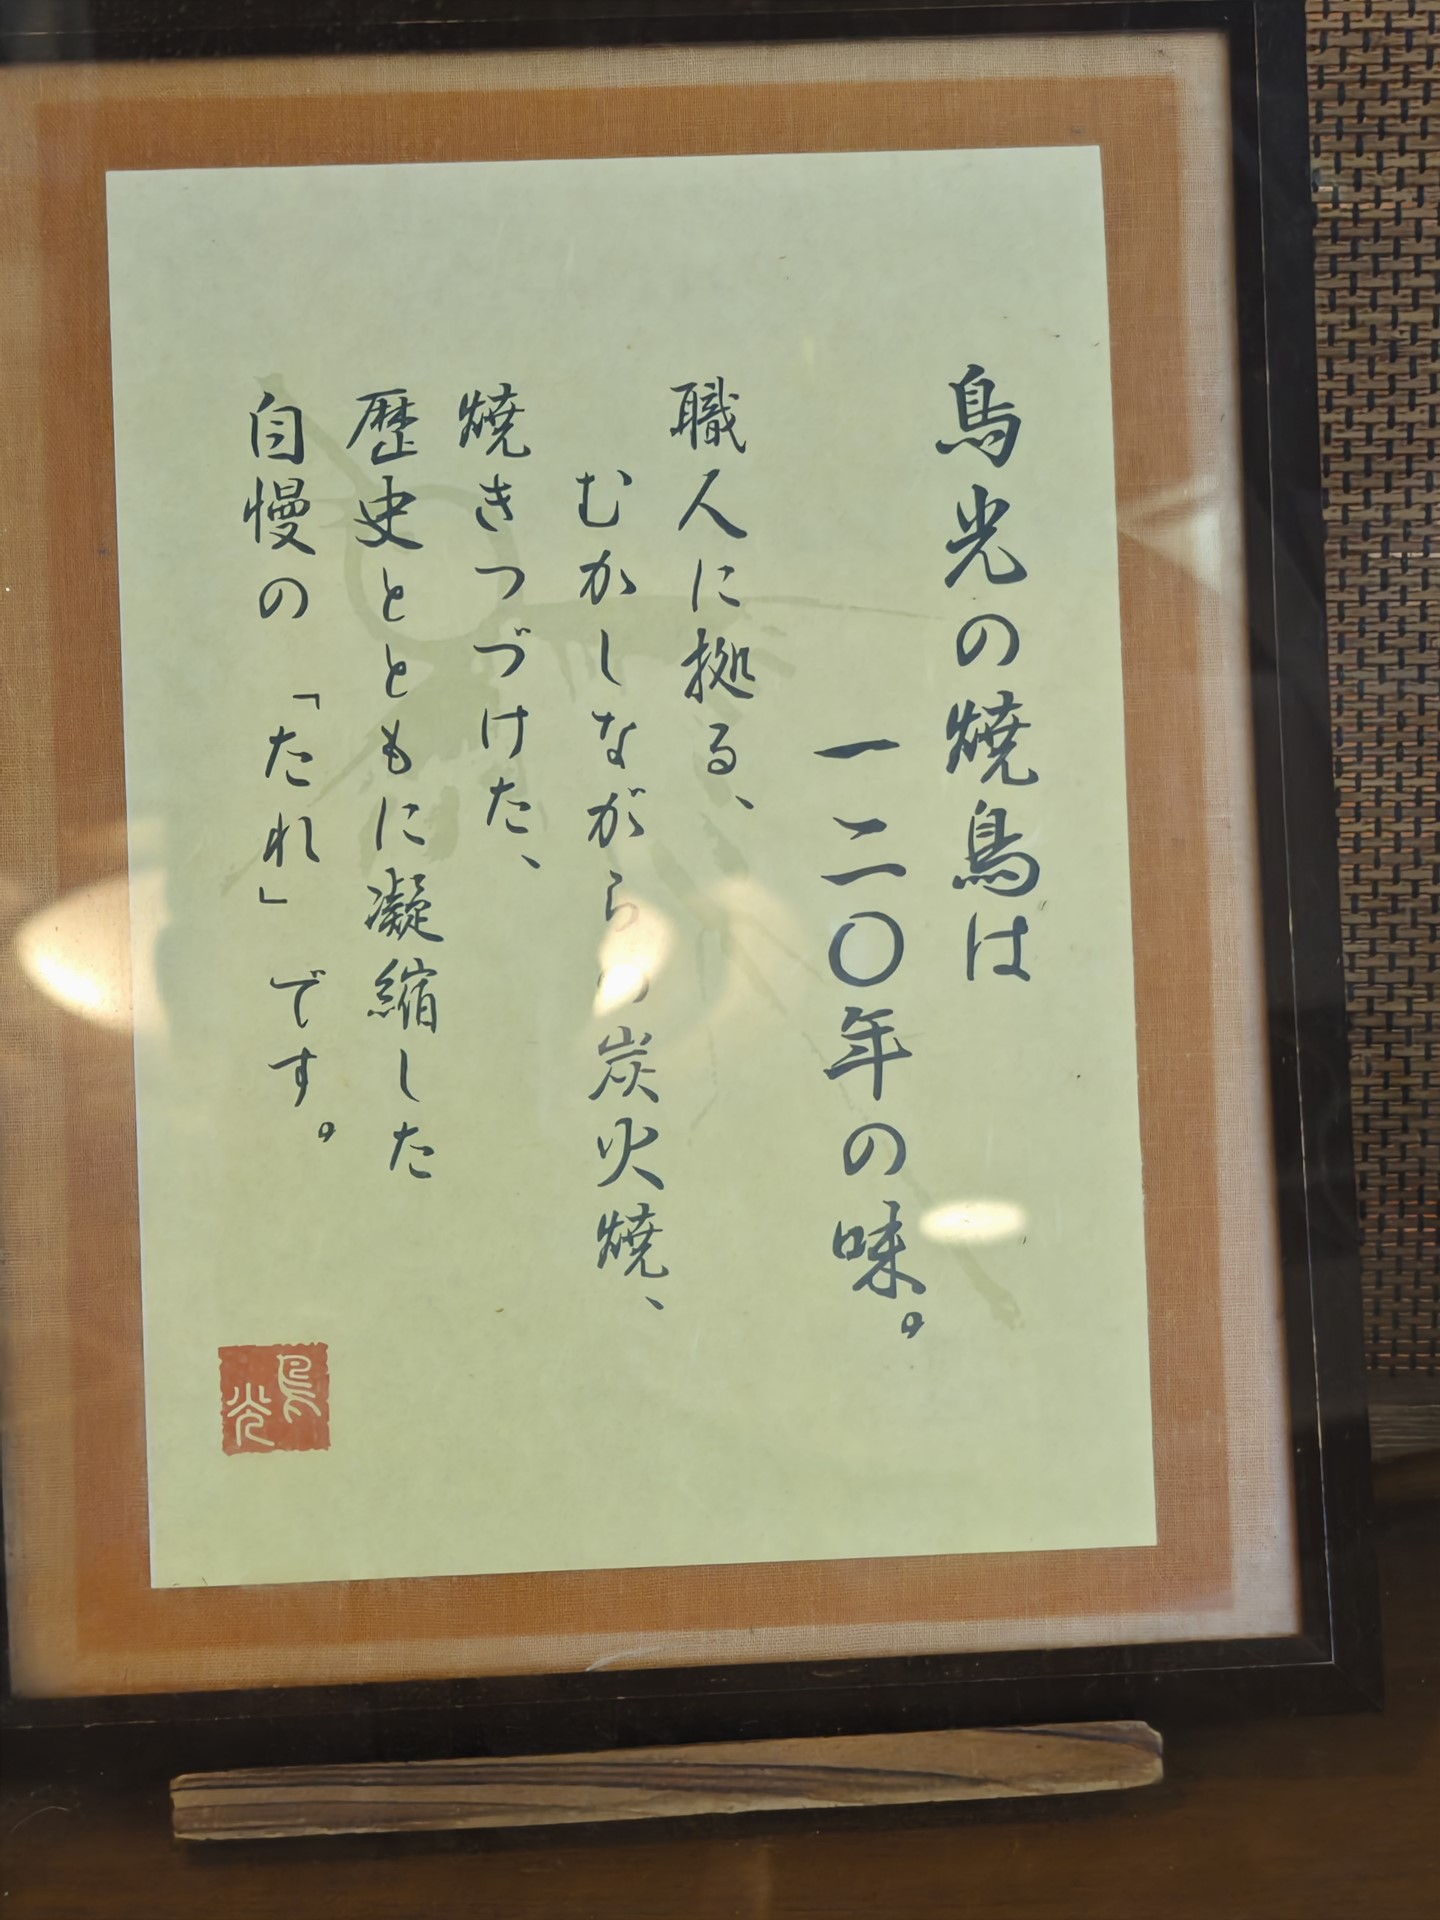 鳥光の焼鳥は
一二〇年の味。
職人に拠る、
むかしながらの炭火焼、
焼きつづけた、
歴史とともに凝縮した
自慢の「たれ」です。
鳥光